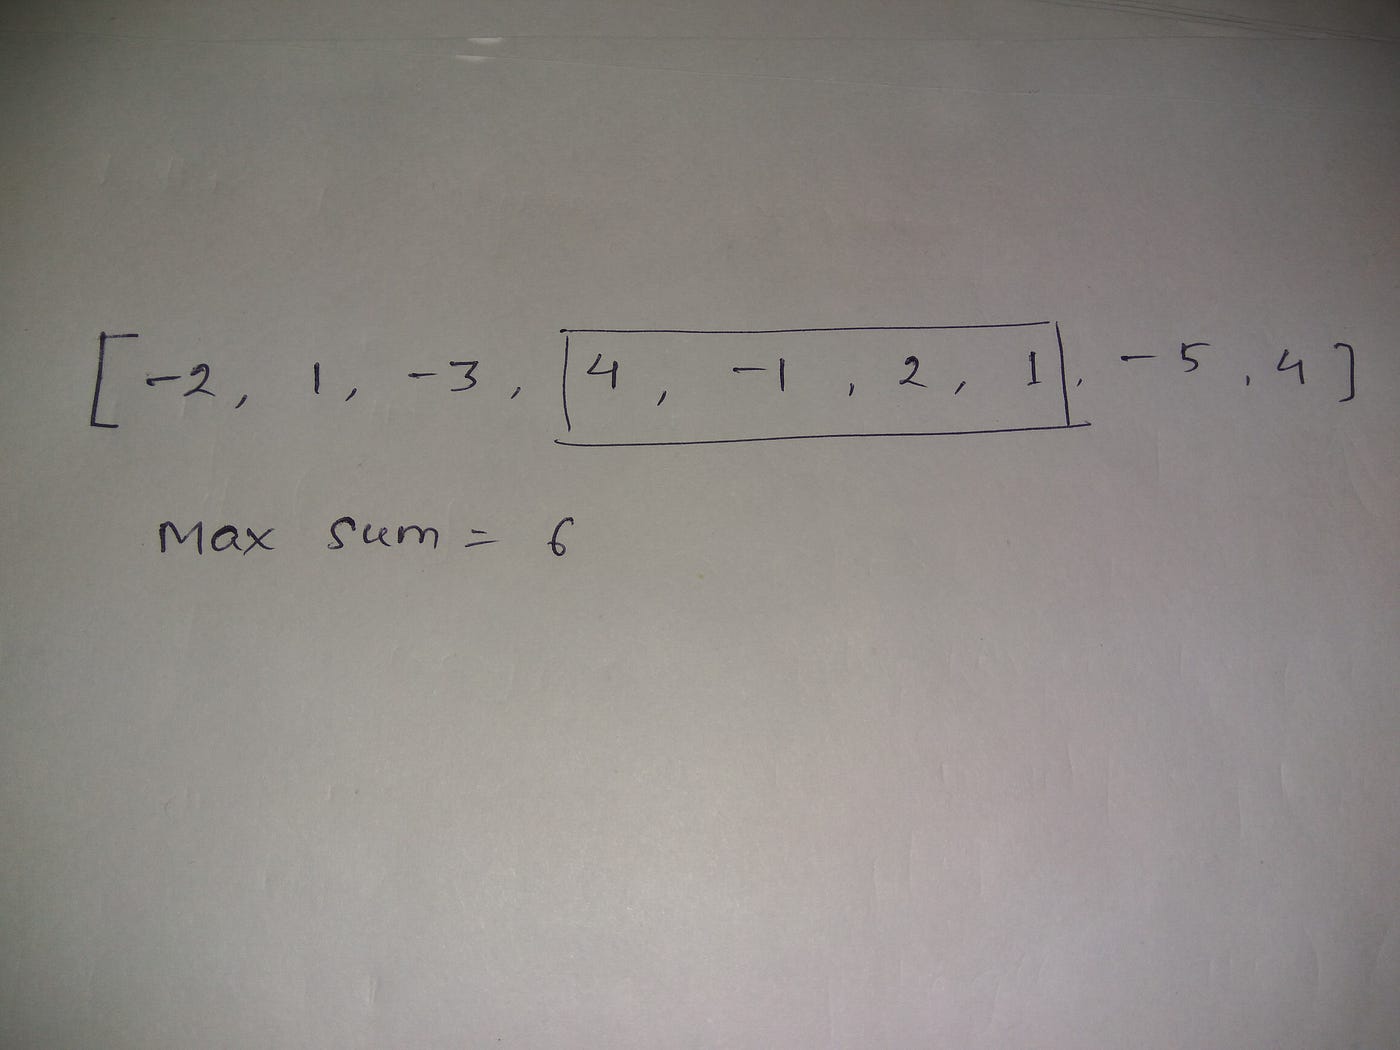 [-2, 1, -3, 4, -1, 2, 1, -5, 4]
Max sum = 6